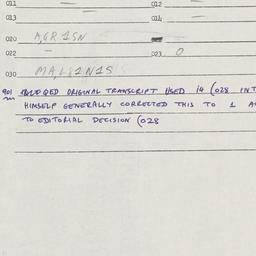 011 — 012 —
013 014 —
020 A,GR1SN
022 — 023 0
030 MAL81N1S
901 ORIGINAL TRANSCRIPT USED 14 (028 INT
HIMSELF GENERALLY CORRECTED THIS TO 1 A
TO EDITORIAL DECISION (028